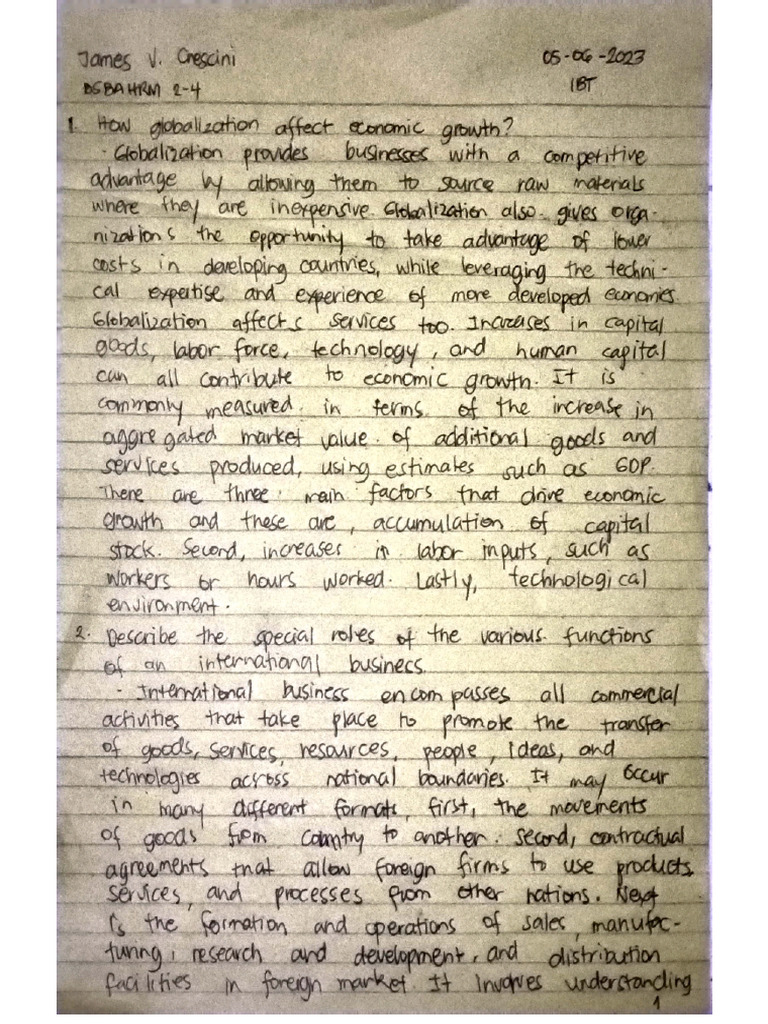 James V. Crescini 05-06-2023
BSBAHRM 2-4 IBT
1. How globalization affect economic growth?
- Globalization provides businesses with a competitive
advantage by allowing them to source raw materials
where they are inexpensive. Globalization also gives orga-
nizations the opportunity to take advantage of lower
costs in developing countries, while leveraging the techni-
cal expertise and experience of more developed economies.
Globalization affects services too. Increases in capital
goods, labor force, technology, and human capital
can all contribute to economic growth. It is
commonly measured in terms of the increase in
aggregated market value of additional goods and
services produced, using estimates such as GDP.
There are three main factors that drive economic
growth and these are, accumulation of capital
stock. Second, increases in labor inputs, such as
workers or hours worked. Lastly, technological
environment.
2. Describe the special roles of the various functions
of an international business.
- International business encompasses all commercial
activities that take place to promote the transfer
of goods, services, resources, people, ideas, and
technologies across national boundaries. It may occur
in many different formats, first, the movements
of goods from country to another. Second, contractual
agreements that allow foreign firms to use products
services, and processes from other nations. Next
is the formation and operations of sales, manufac-
turing, research and development, and distribution
facilities in foreign market. It involves understanding
1